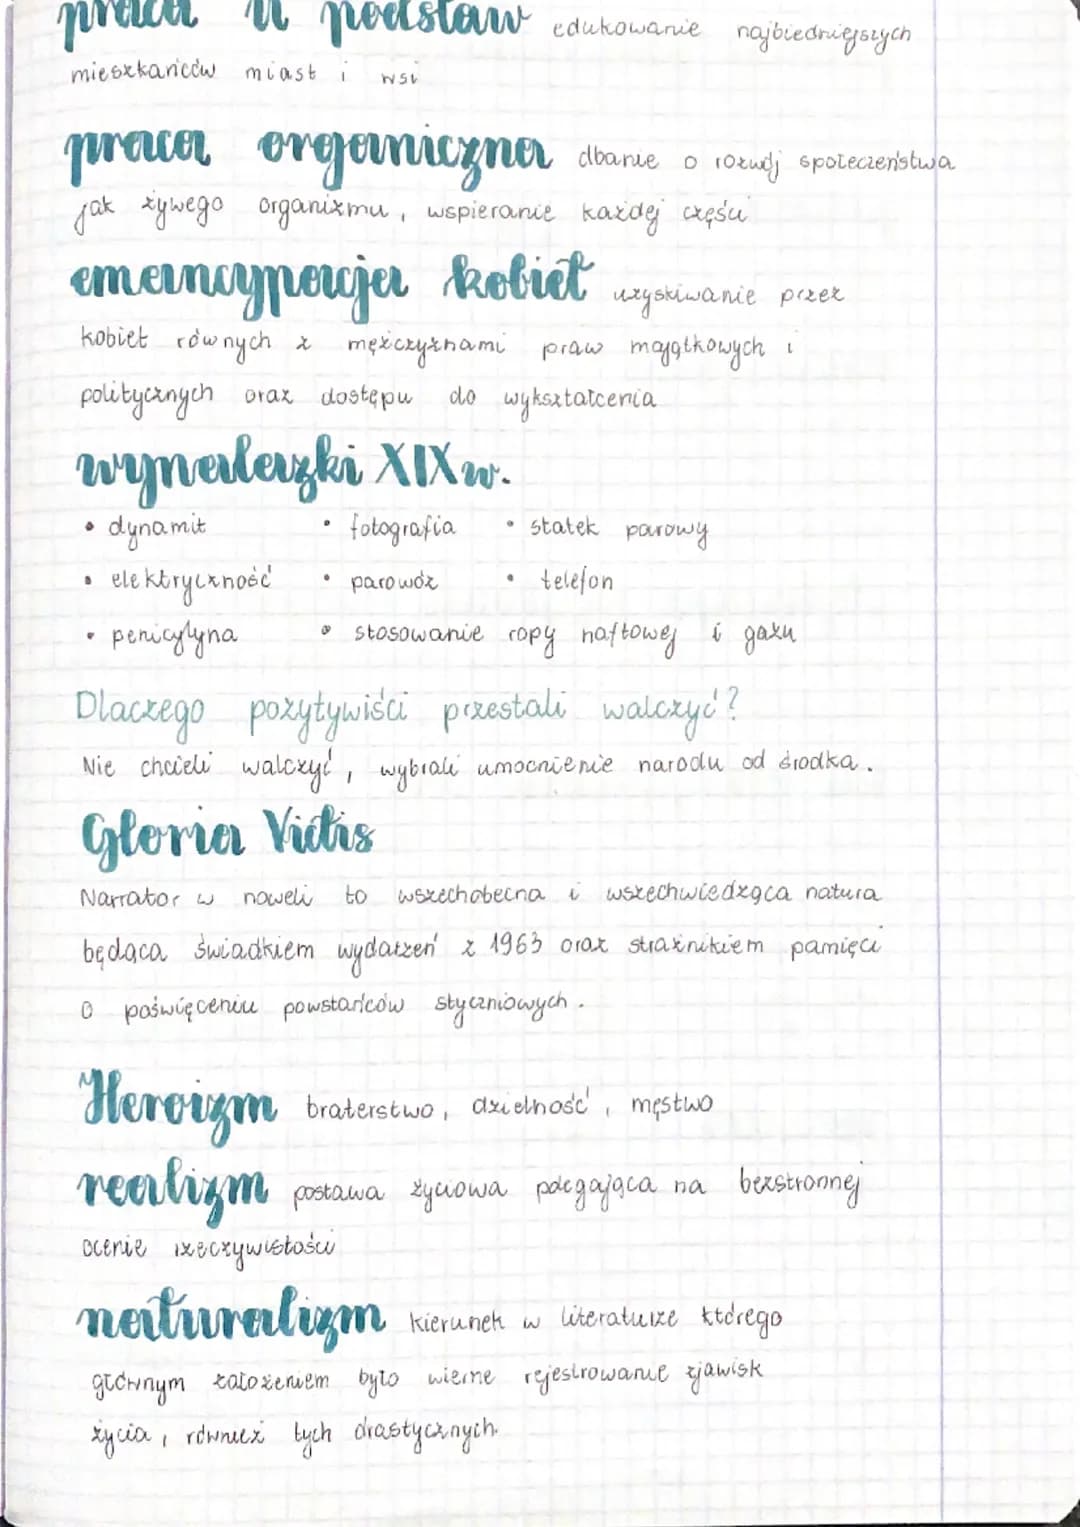 praca u podstaw edukowanie najbiedniejszych
mieszkańców miast i wsi
praca organiczna dbanie o rozwój społeczeństwa
jak żywego organizmu, wspieranie każdej części
emancypacja kobiet uzyskiwanie przez
kobiet równych z mężczyznami praw majątkowych i
politycznych oraz dostępu do wykształcenia
wynalazki XIX w.
• dynamit • fotografia • statek parowy
• elektryczność • parowóz • telefon
• penicylyna • stosowanie ropy naftowej i gazu
Dlaczego pozytywiści przestali walczyć?
Nie chcieli walczyć, wybrali umocnienie narodu od środka.
Gloria Victis
Narrator w noweli to wszechobecna i wszechwiedząca natura
będąca świadkiem wydarzeń z 1963 oraz strażnikiem pamięci
o poświęceniu powstańców styczniowych.
Heroizm braterstwo, dzielność, męstwo
realizm postawa życiowa polegająca na bezstronnej
ocenie rzeczywistości
naturalizm kierunek w literaturze którego
głównym założeniem było wierne rejestrowanie zjawisk
życia, również tych drastycznych.